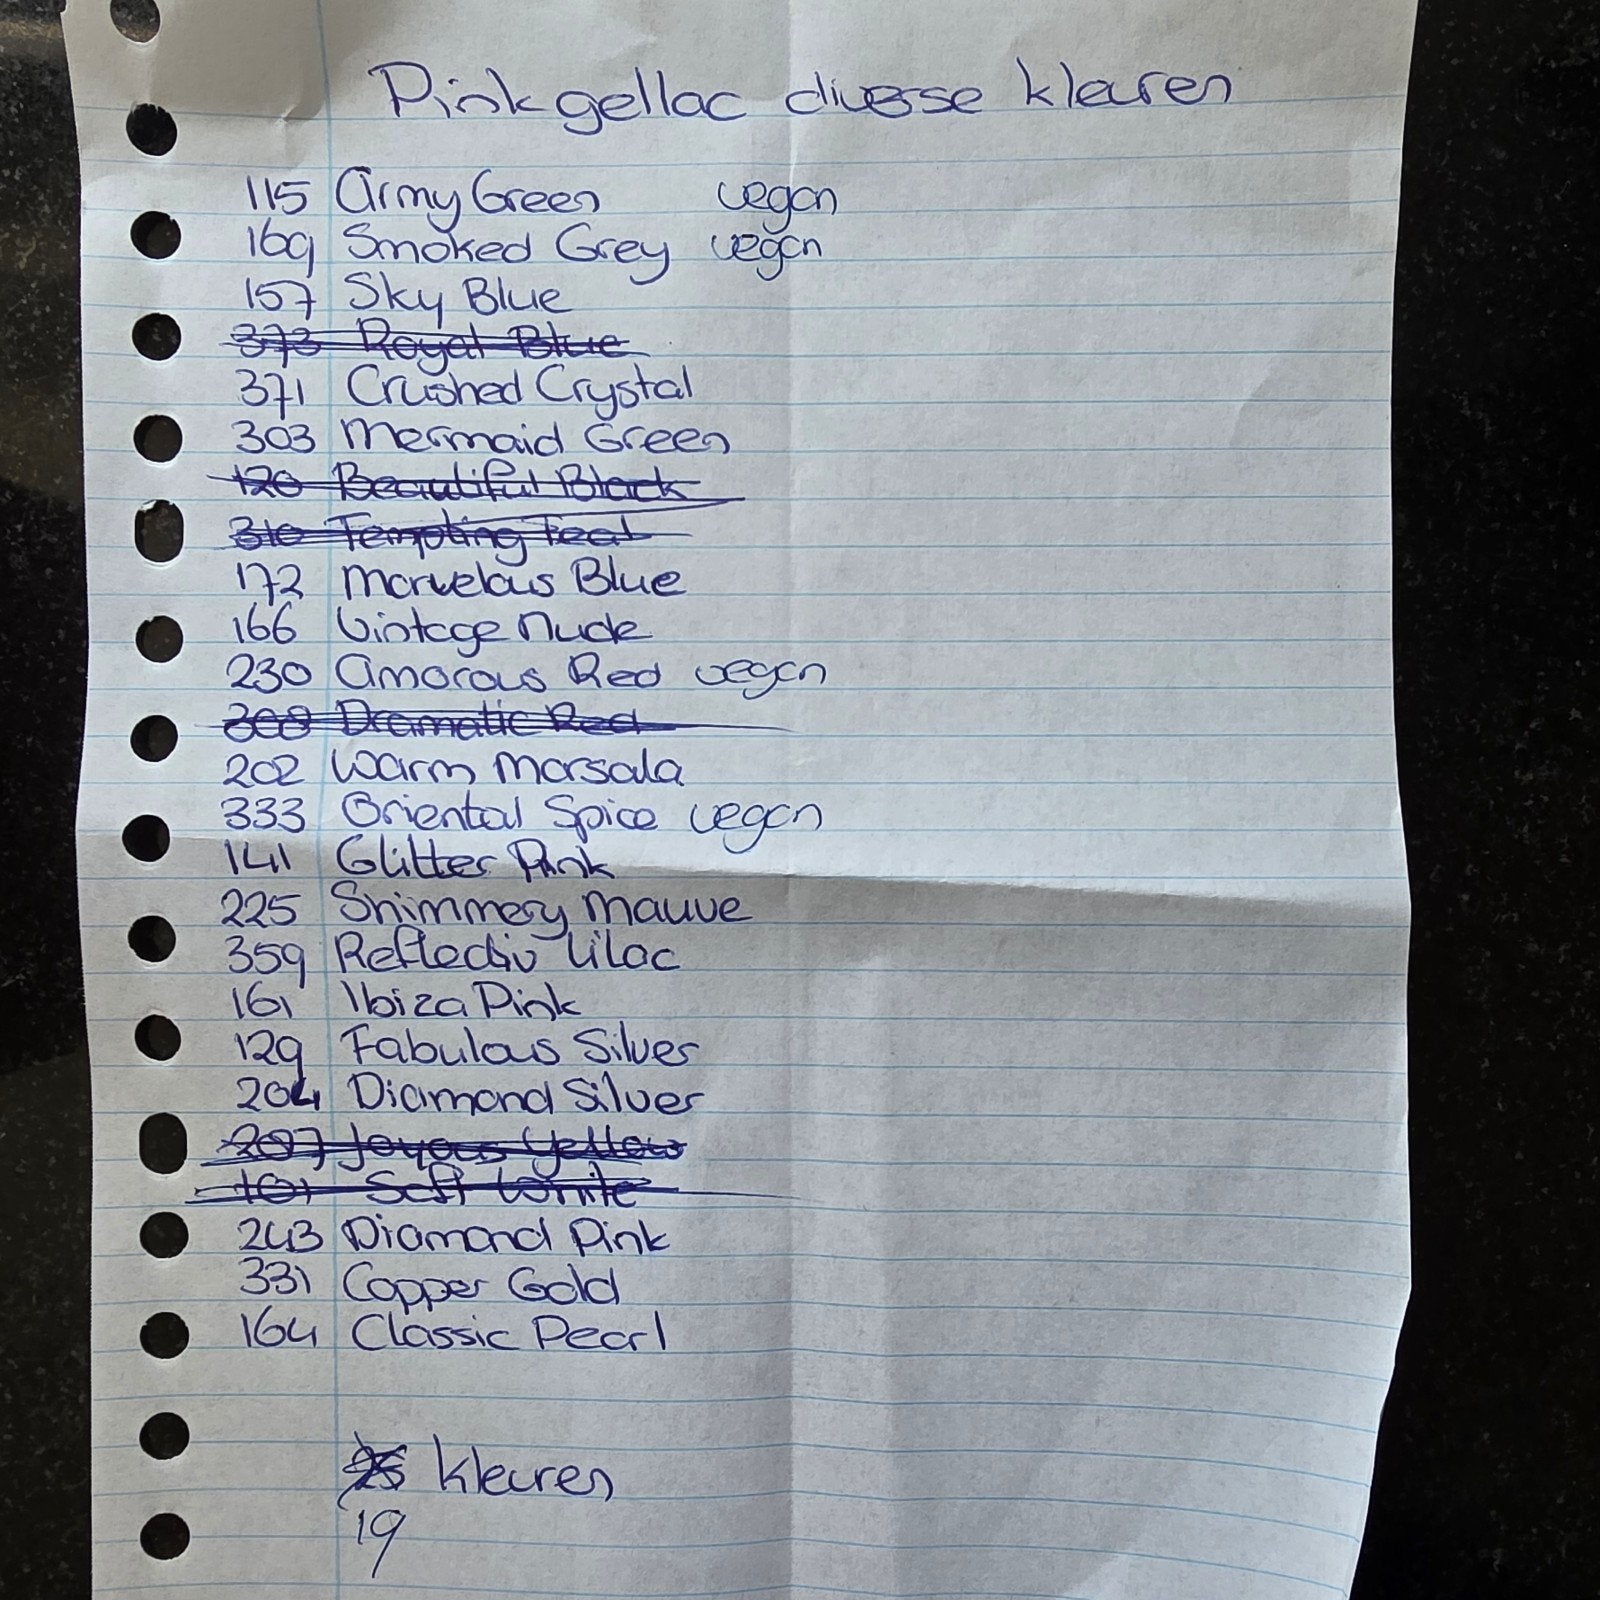 Pinkgellac diverse kleuren
115 Army Green vegan
169 Smoked Grey vegan
157 Sky Blue
373 Royal Blue
371 Crushed Crystal
303 Mermaid Green
120 Beautiful Black
310 Tempting Teal
172 Marvelous Blue
166 Vintage Nude
230 Amorous Red vegan
308 Dramatic Red
202 Warm Marsala
333 Oriental Spice vegan
141 Glitter Pink
225 Shimmery Mauve
359 Reflectiv Lilac
161 Ibiza Pink
129 Fabulous Silver
204 Diamond Silver
207 Joyous Yellow
101 Soft White
243 Diamond Pink
331 Copper Gold
164 Classic Pearl
25 kleuren
19